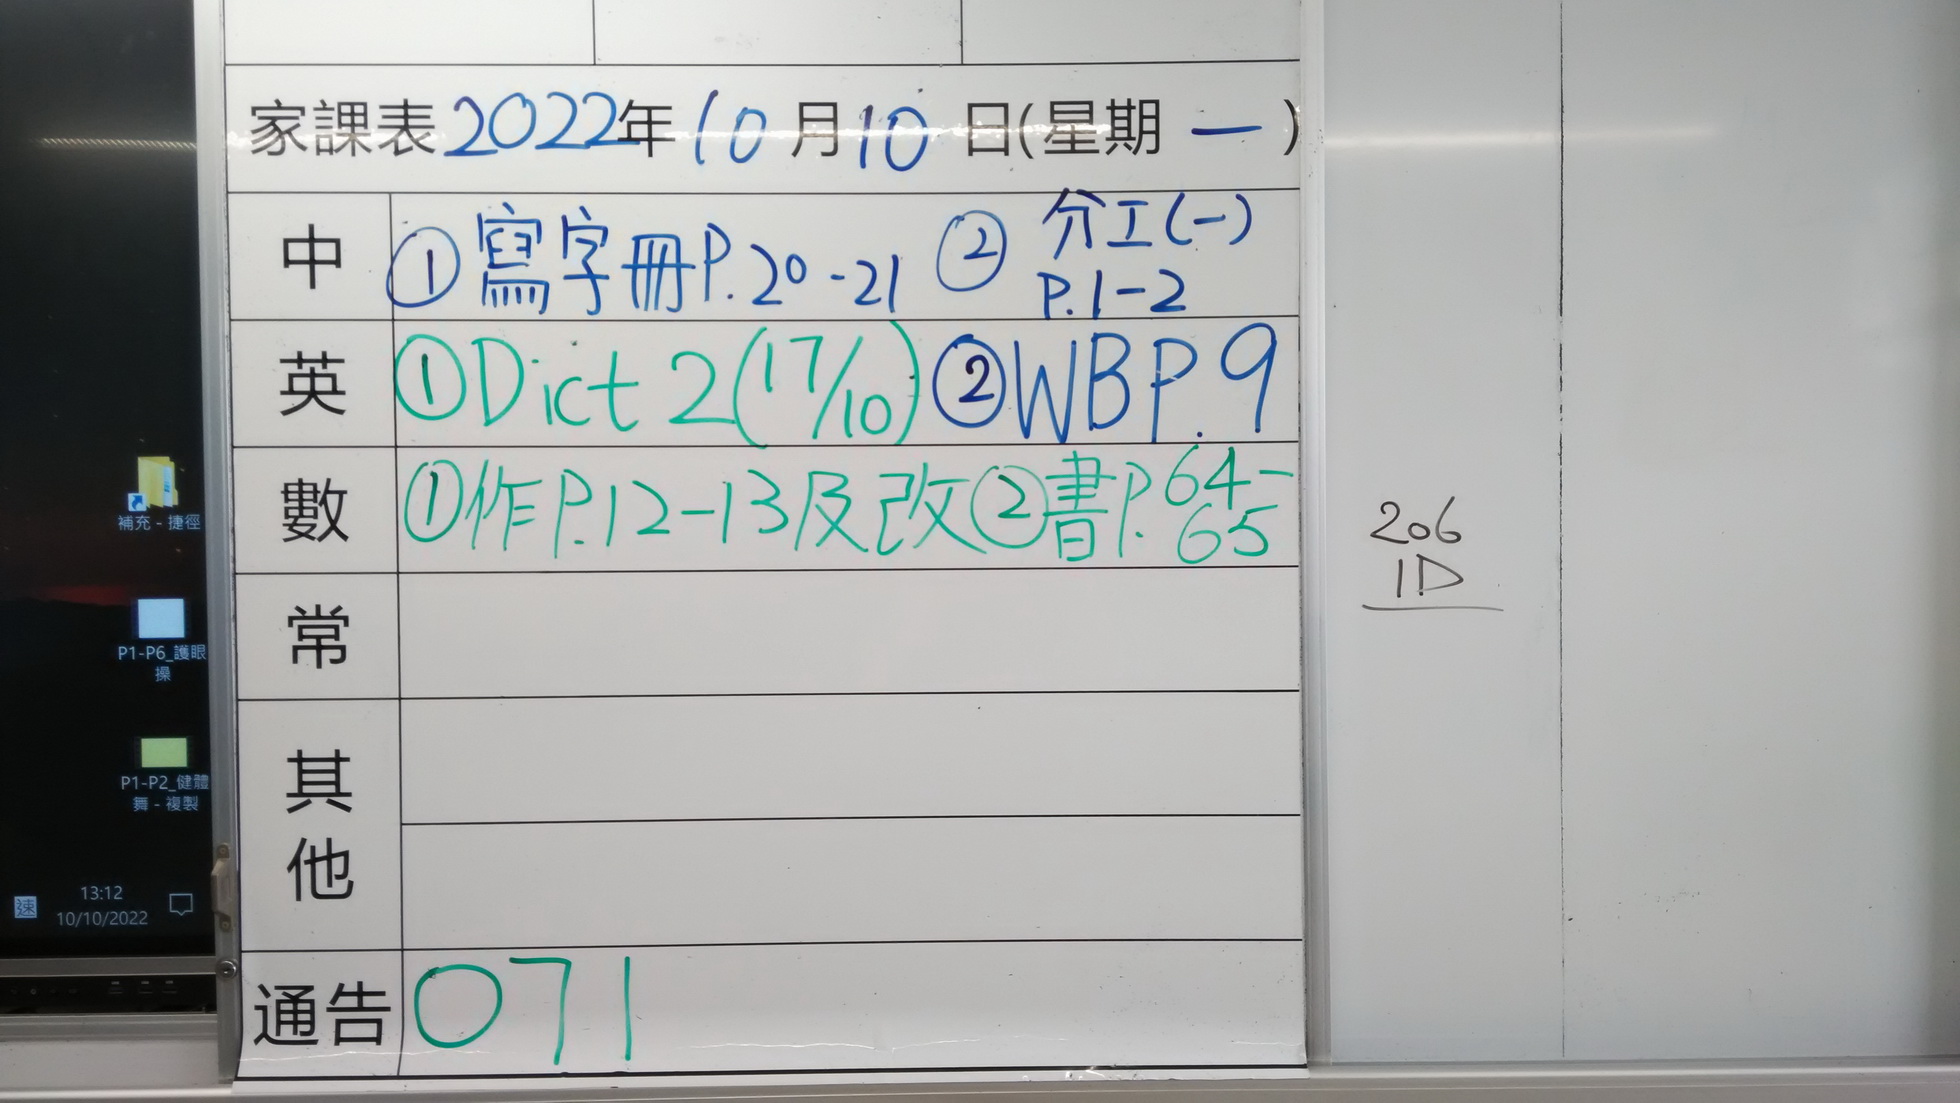 家課表 2022年 10月10日(星期一)
中 ①寫字冊P.20-21 ②分工(一) P.1-2
英 ①Dict 2(17/10) ②WB P.9
數 ①作P.12-13及改②書P.64-65
常
其他
通告 071
206
1D
補充 - 捷徑
P1-P6_護眼
操
P1-P2_健體
舞 - 複製
速
13:12
10/10/2022